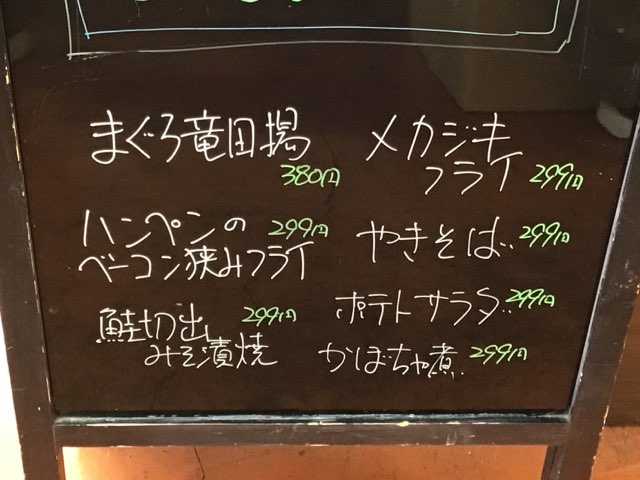 まぐろ竜田揚
380円
ハンペンの 299円
ベーコン狭みフライ
鮭切出し 299円
みそ漬焼
メカジキ
フライ 299円
やきそば 299円
ポテトサラダ 299円
かぼちゃ煮 299円